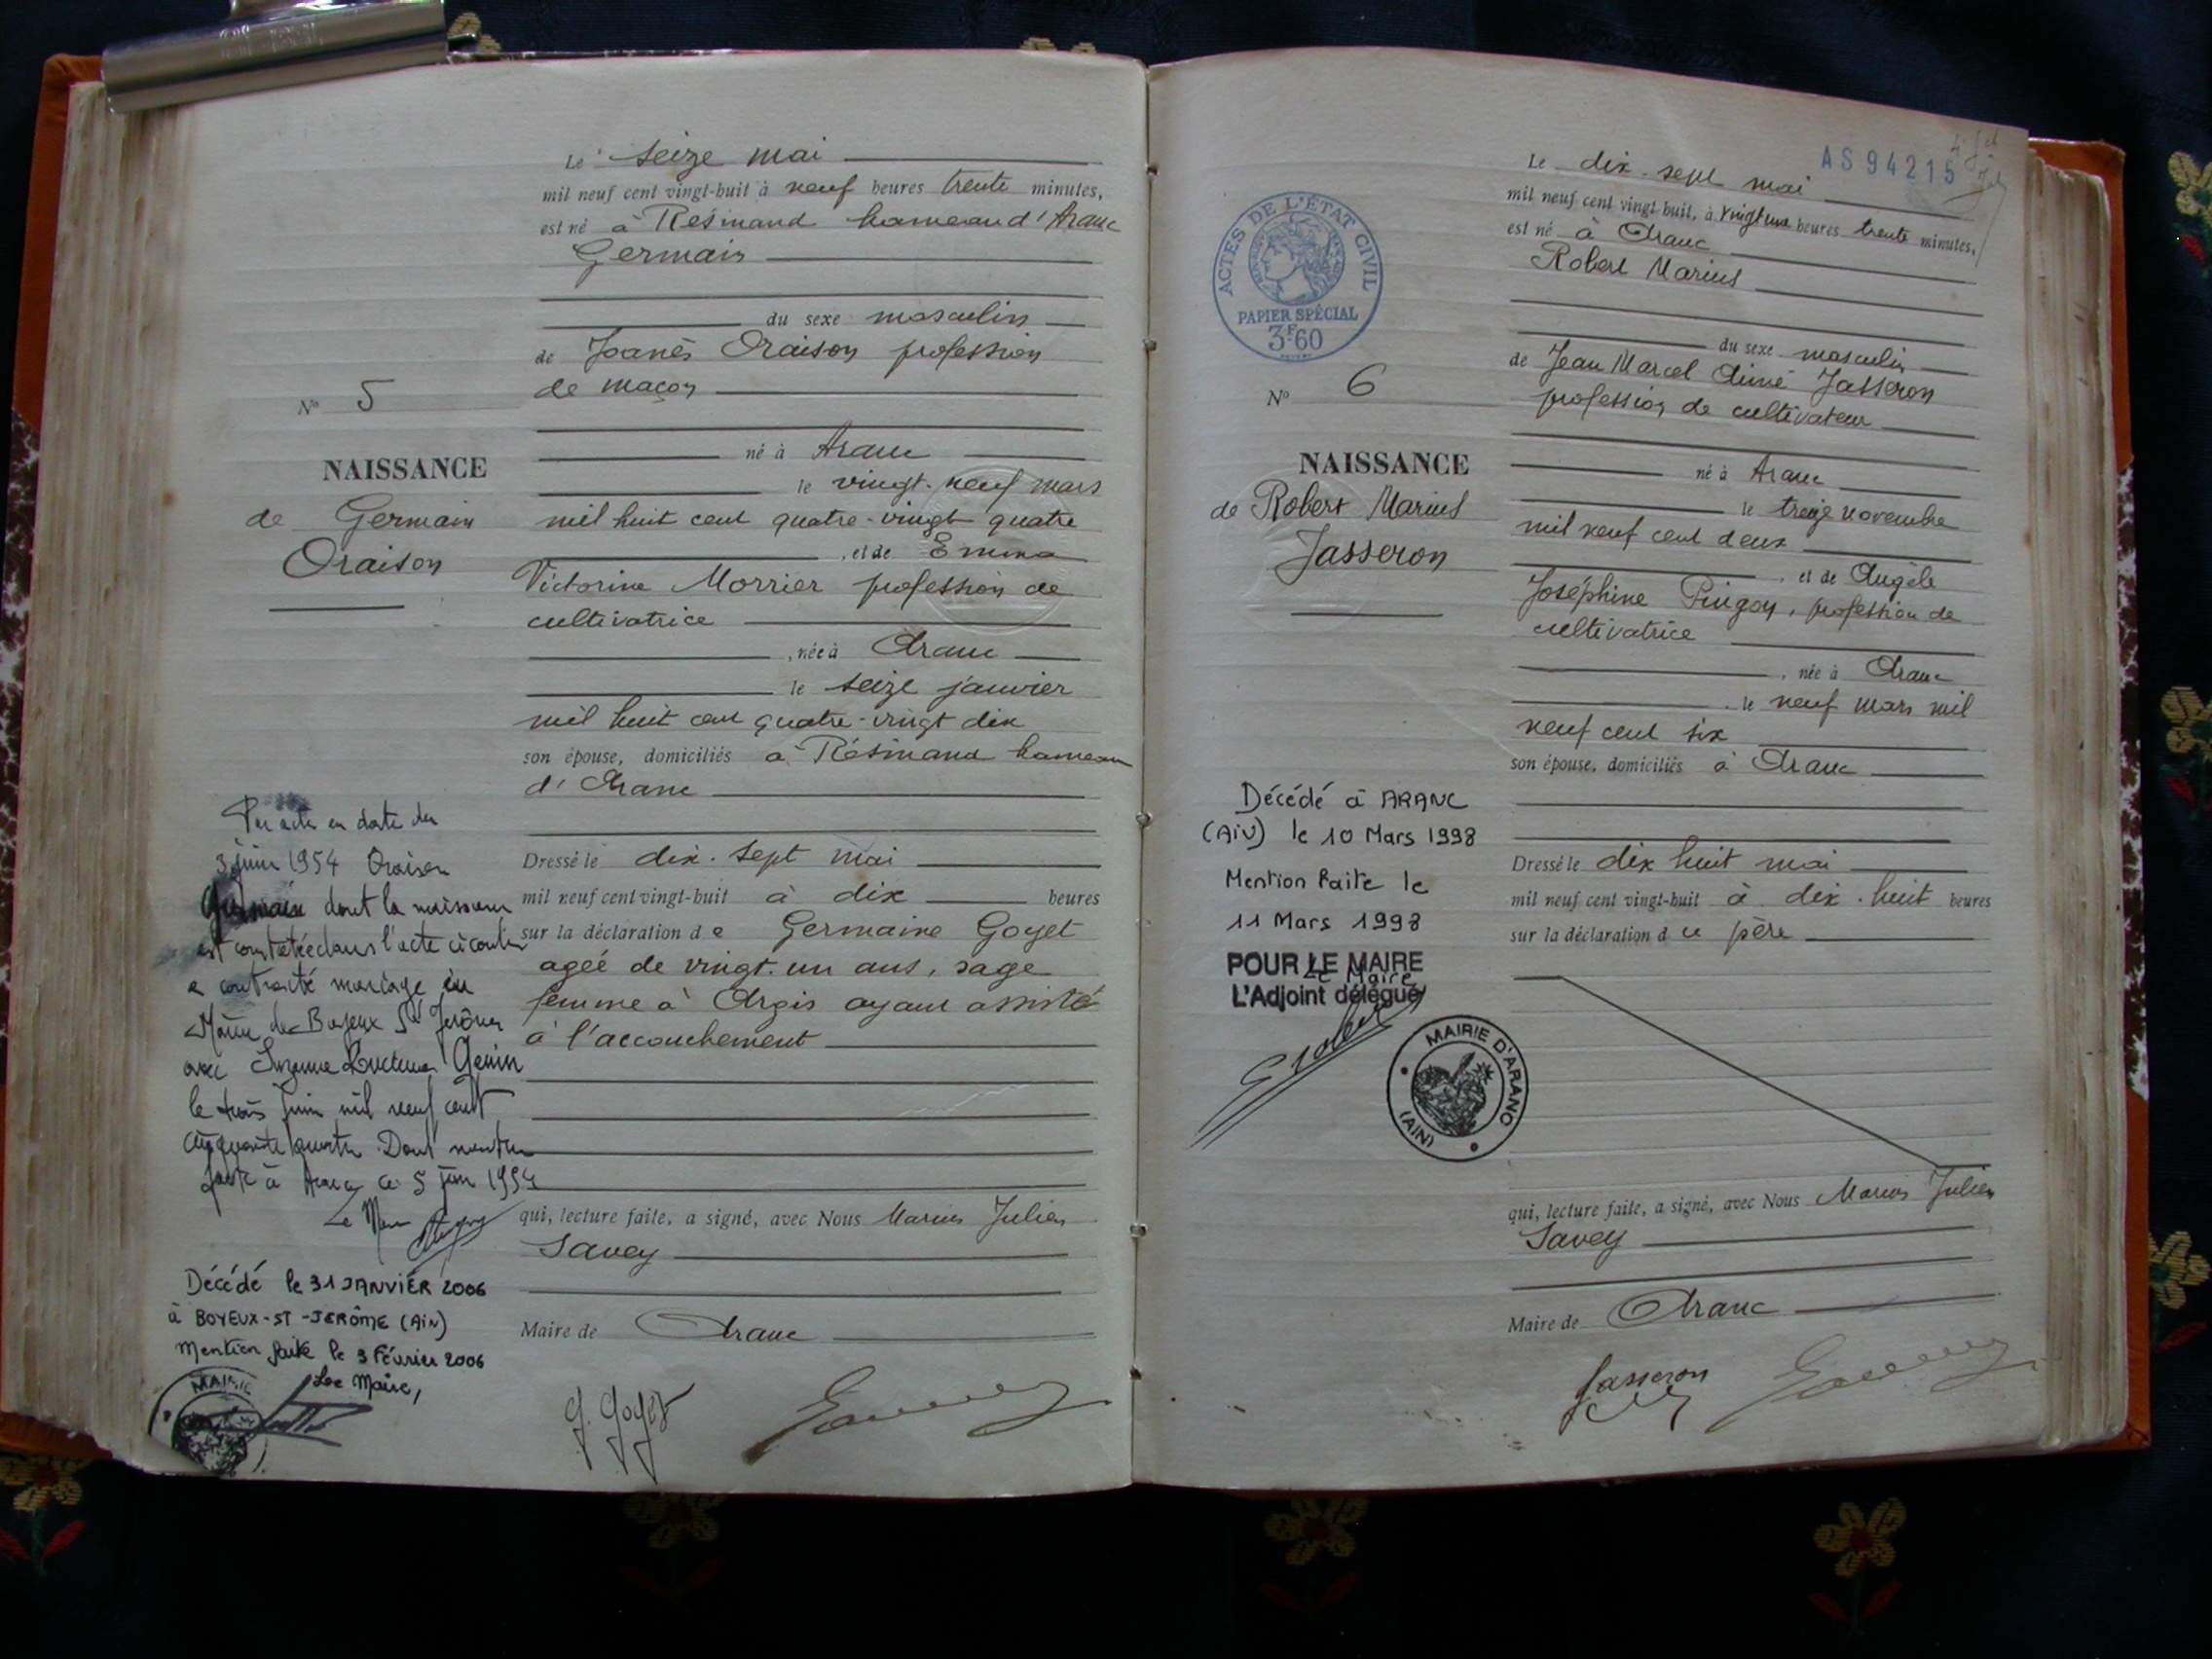 Le seize mai
mil neuf cent vingt-huit à neuf heures trente minutes,
est né à Résinand hameau d'Aranc
Germain
du sexe masculin
de Joanès Oraison profession
de maçon
né à Aranc
le vingt-neuf mars
mil huit cent quatre-vingt quatre
, et de Emma
Victorine Morrier profession de
cultivatrice
, née à Aranc
le seize janvier
mil huit cent quatre-vingt dix
son épouse, domiciliés à Résinand hameau
d'Aranc
Dressé le dix-sept mai
mil neuf cent vingt-huit à dix heures
sur la déclaration de Germaine Goyet
agée de vingt-un ans, sage
femme à Argis ayant assisté
à l'accouchement
qui, lecture faite, a signé, avec Nous Marius Julien
Savey
Maire de Aranc
G. Goyet
N° 5
NAISSANCE
de Germain
Oraison
Par acte en date du
3 juin 1954 Oraison
Germain dont la naissance
est constatée dans l'acte ci contre
a contracté mariage en
Mairie de Boyeux St Jérôme
avec Suzanne Génin
le trois juin mil neuf cent
cinquante quatre. Dont mention
faite à Aranc ce 5 juin 1954
Le Maire
Décédé le 31 JANVIER 2006
à BOYEUX-ST-JERÔME (AiN)
Mention faite le 3 Février 2006
Le Maire,
MAIRIE
AS 94215
Le dix-sept mai
mil neuf cent vingt-huit, à vingt une heures trente minutes,
est né à Aranc
Robert Marius
du sexe masculin
de Jean Marcel Aimé Jasseron
profession de cultivateur
né à Aranc
le treize novembre
mil neuf cent deux
, et de Angèle
Joséphine Pingon, profession de
cultivatrice
, née à Aranc
le neuf mars mil
neuf cent six
son épouse, domiciliés à Aranc
Dressé le dix huit mai
mil neuf cent vingt-huit à dix-huit heures
sur la déclaration du père
qui, lecture faite, a signé, avec Nous Marius Julien
Savey
Maire de Aranc
Jasseron
ACTES DE L'ÉTAT CIVIL
PAPIER SPÉCIAL
3F60
N° 6
NAISSANCE
de Robert Marius
Jasseron
Décédé à ARANC
(AiN) le 10 Mars 1998
Mention faite le
11 Mars 1998
Le Maire
POUR LE MAIRE
L'Adjoint délégué
MAIRIE D'ARANC
(AIN)